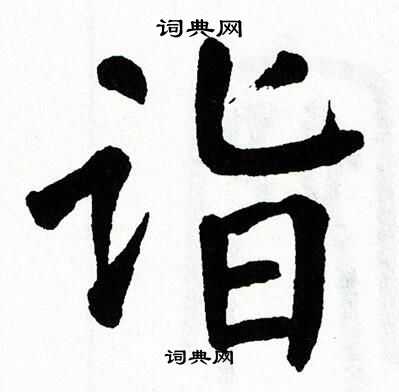 词典网
诣
词典网